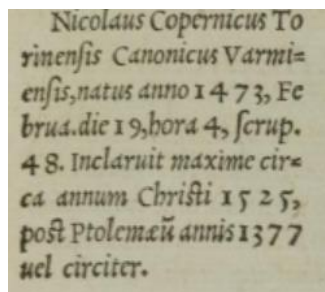 Nicolaus Copernicus To
rinenſis Canonicus Varmi=
enſis, natus anno 1473, Fe
brua. die 19, hora 4, ſcrup.
48. Inclaruit maxime cir=
ca annum Chriſti 1525,
poſt Ptolemæũ annis 1377
uel circiter.